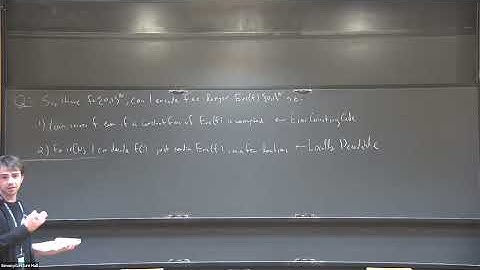 Q: Say I have f∈{0,1}^N, can I encode f as longer Enc(f) s.t.
1) I can recover f even if a constant frac of Enc(f) is corrupted ← Error Correcting Code
2) For i∈[N], I can decode f(i) just reading Enc(f) in a few locations ← Locally Decodable
Simons Lecture Hall